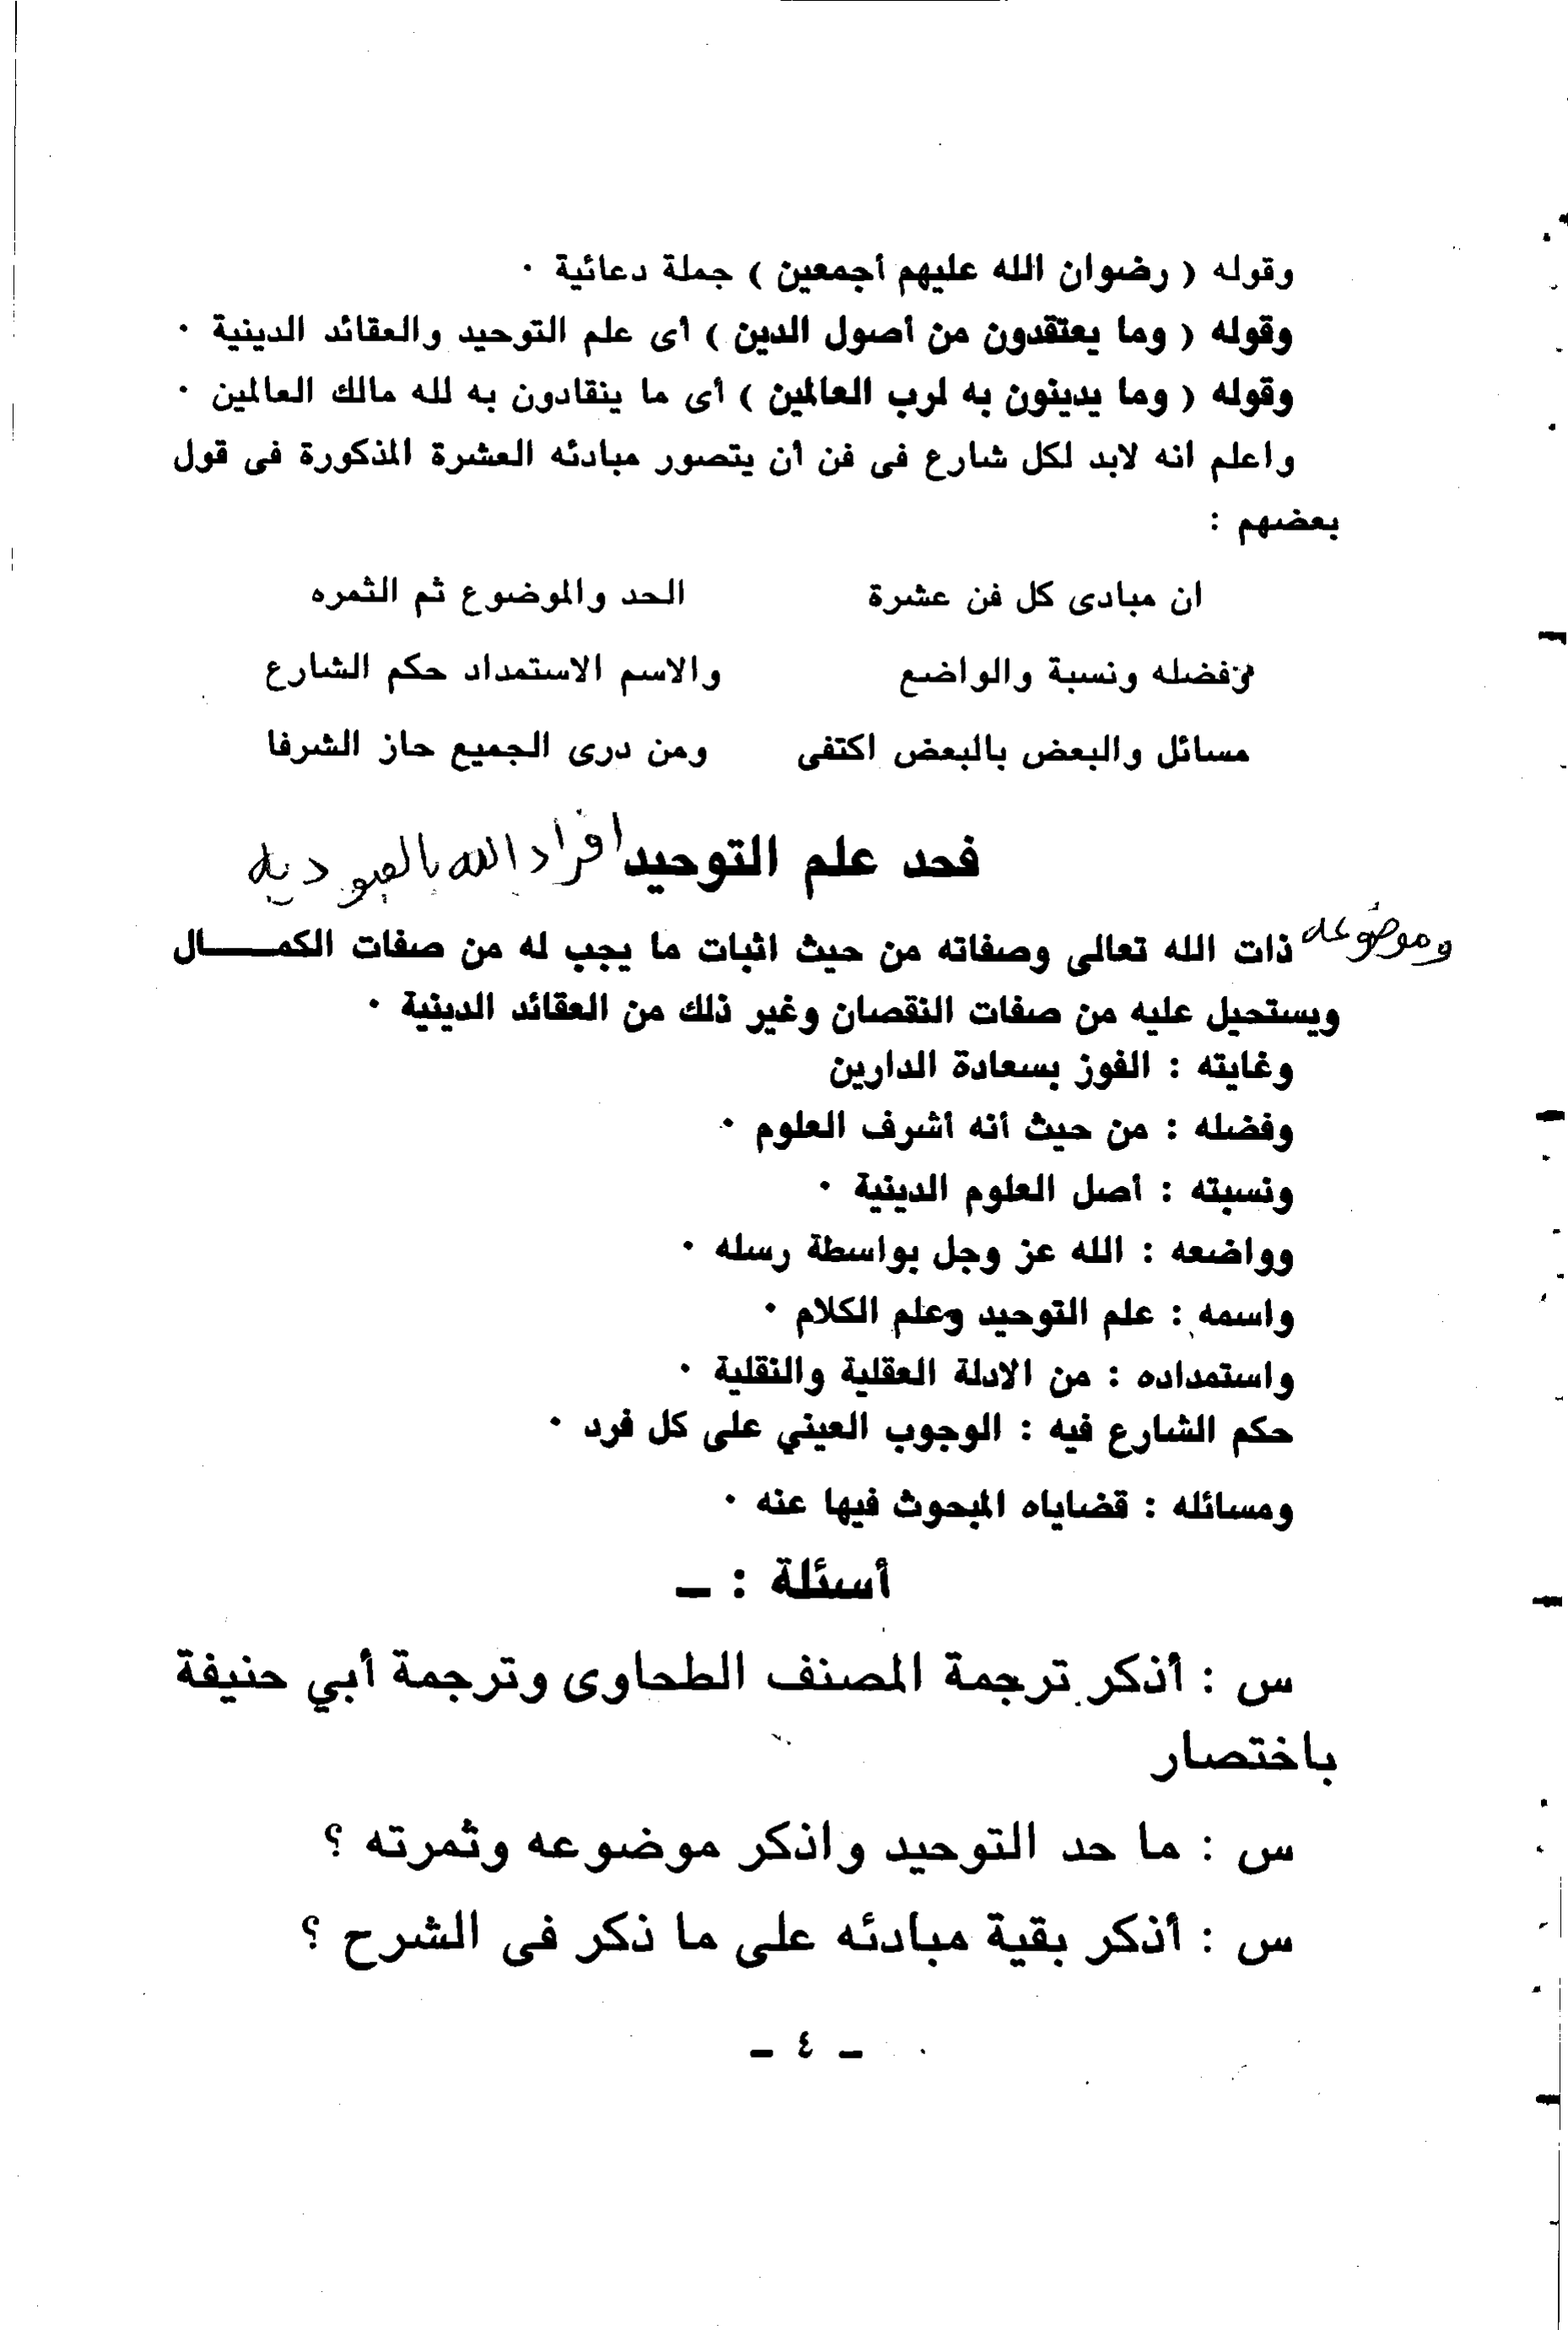 وقوله ( رضوان الله عليهم أجمعين ) جملة دعائية ٠
وقوله ( وما يعتقدون من أصول الدين ) أى علم التوحيد والعقائد الدينية ٠
وقوله ( وما يدينون به لرب العالمين ) أى ما ينقادون به لله مالك العالمين ٠
واعلم انه لابد لكل شارع فى فن أن يتصور مبادئه العشرة المذكورة فى قول
بعضهم :
ان مبادى كل فن عشرة الحد والموضوع ثم الثمره
وفضله ونسبة والواضع والاسم الاستمداد حكم الشارع
مسائل والبعض بالبعض اكتفى ومن درى الجميع حاز الشرفا
فحد علم التوحيد افراد الله بالعبوديه
وموضوعه ذات الله تعالى وصفاته من حيث اثبات ما يجب له من صفات الكمـــــال
ويستحيل عليه من صفات النقصان وغير ذلك من العقائد الدينية ٠
وغايته : الفوز بسعادة الدارين
وفضله : من حيث أنه أشرف العلوم ٠
ونسبته : أصل العلوم الدينية ٠
وواضعه : الله عز وجل بواسطة رسله ٠
واسمه : علم التوحيد وعلم الكلام ٠
واستمداده : من الادلة العقلية والنقلية ٠
حكم الشارع فيه : الوجوب العيني على كل فرد ٠
ومسائله : قضاياه المبحوث فيها عنه ٠
أسئلة : ــ
س : أذكر ترجمة المصنف الطحاوى وترجمة أبي حنيفة
باختصار
س : ما حد التوحيد واذكر موضوعه وثمرته ؟
س : أذكر بقية مبادئه على ما ذكر فى الشرح ؟
ـ ٤ ـ